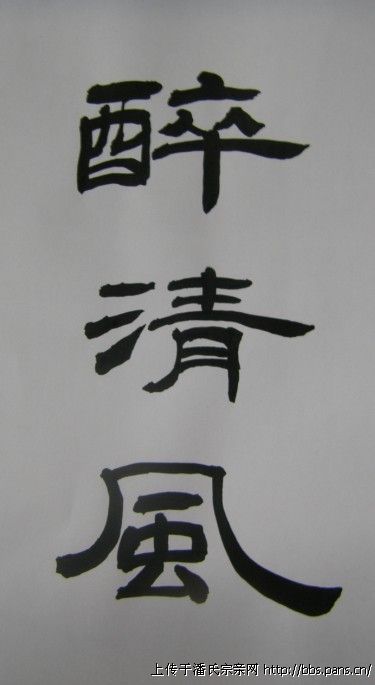 醉
清
風
上传于潘氏宗亲网 http://bbs.pans.cn/